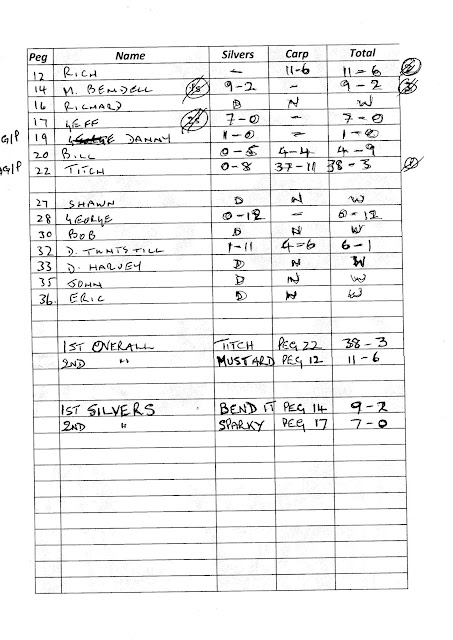 Peg Name Silvers Carp Total
12 RICH – 11-6 11=6 2
14 M. BENDELL 1S 9-2 – 9-2 3
16 RICHARD D N W
17 GEFF 2S 7-0 – 7=0
G/P 19 DANNY 1-0 = 1=0
20 BILL 0-5 4-4 4-9
G/P 22 TITCH 0-8 37-11 38-3 1
27 SHAWN D N W
28 GEORGE 0-12 – 0-12
30 BOB D N W
32 D. TUNTSTILL 1-11 4=6 6-1
33 D. HARVEY D N W
35 JOHN D N W
36 ERIC D N W
1ST OVERALL TITCH PEG 22 38-3
2ND " MUSTARD PEG 12 11-6
1ST SILVERS BEND IT PEG 14 9-2
2ND " SPARKY PEG 17 7-0